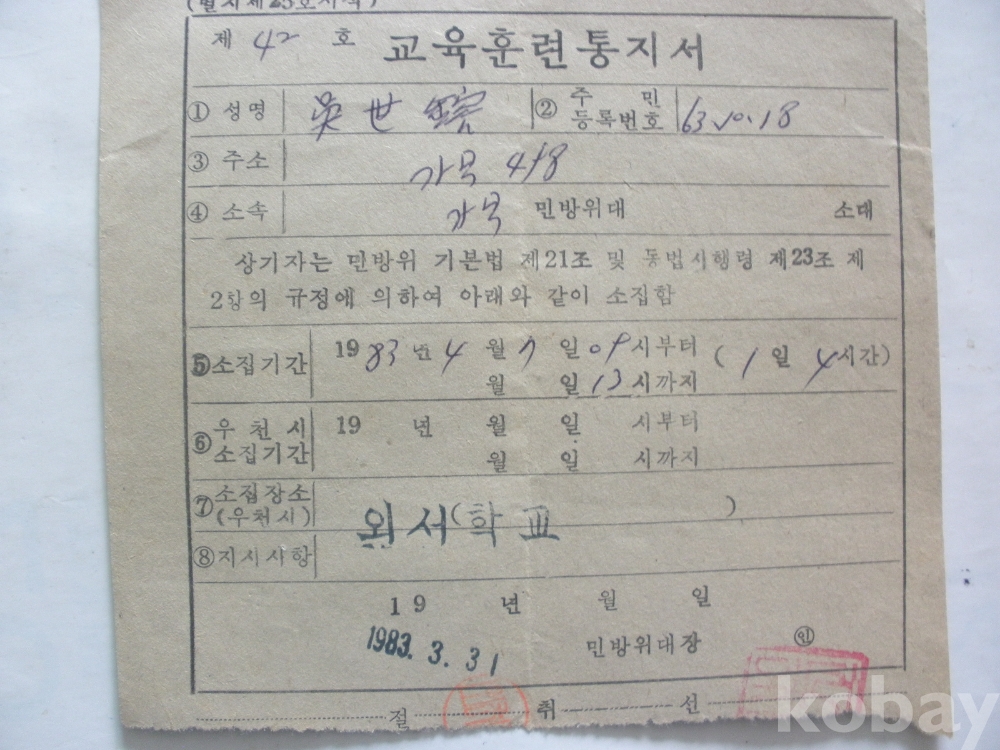 (별지제23호서식)
제 42 호 교육훈련통지서
① 성명 吳世 ② 주민등록번호 63.10.18
③ 주소 가곡 418
④ 소속 가곡 민방위대 소대
상기자는 민방위 기본법 제21조 및 동법시행령 제23조 제
2항의 규정에 의하여 아래와 같이 소집함
⑤ 소집기간 1983년 4월 7일 09시부터 (1일 4시간)
월 일 13시까지
⑥ 우천시 소집기간 19 년 월 일 시부터
월 일 시까지
⑦ 소집장소 (우천시) 외서(학교 )
⑧ 지시사항
19 년 월 일
1983. 3. 31 민방위대장 ㊞
절 취 선
kobay